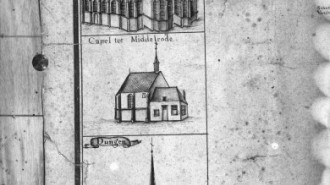 Capel tot Middelrode.
Dungen